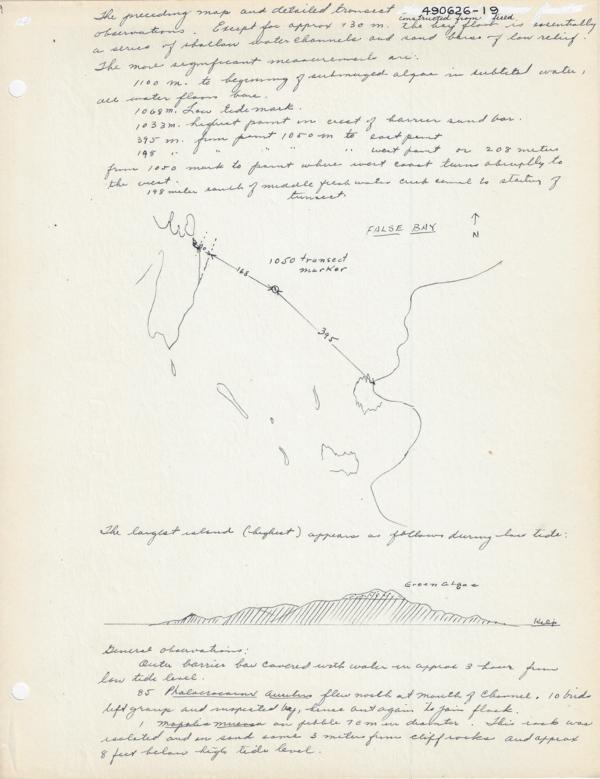 490626-19
The preceding map and detailed transect constructed from field
observations. Except for approx 730 m. The bay floor is essentially
a series of shallow water channels and sand bars of low relief.
The more significant measurements are:
1100 m. to beginning of submerged algae in subtidal water,
all water flows here.
1068 m. Low tide mark.
1033 m. highest point on crest of barrier sand bar.
395 m. from point 1050 m to east point
198 " " " " " west point or 208 meters
from 1050 mark to point where west coast turns abruptly to
the west.
198 meter south of middle fresh water creek canal to starting of
transect.
FALSE BAY
N
1050 transect
marker
168
395
The largest island (highest) appears as follows during low tide:
Green Algae
Kelp
General Observations:
Outer barrier bar covered with water in approx 3 hour from
low tide level.
85 Phalacrocorax auritus flew north at mouth of Channel. 10 birds
left group and inspected bay, thence out again to join flock.
1 Mopalia muscosa on pebble 7 cm in diameter. This rock was
isolated and on sand some 3 meters from cliff rocks and approx
8 feet below high tide level.